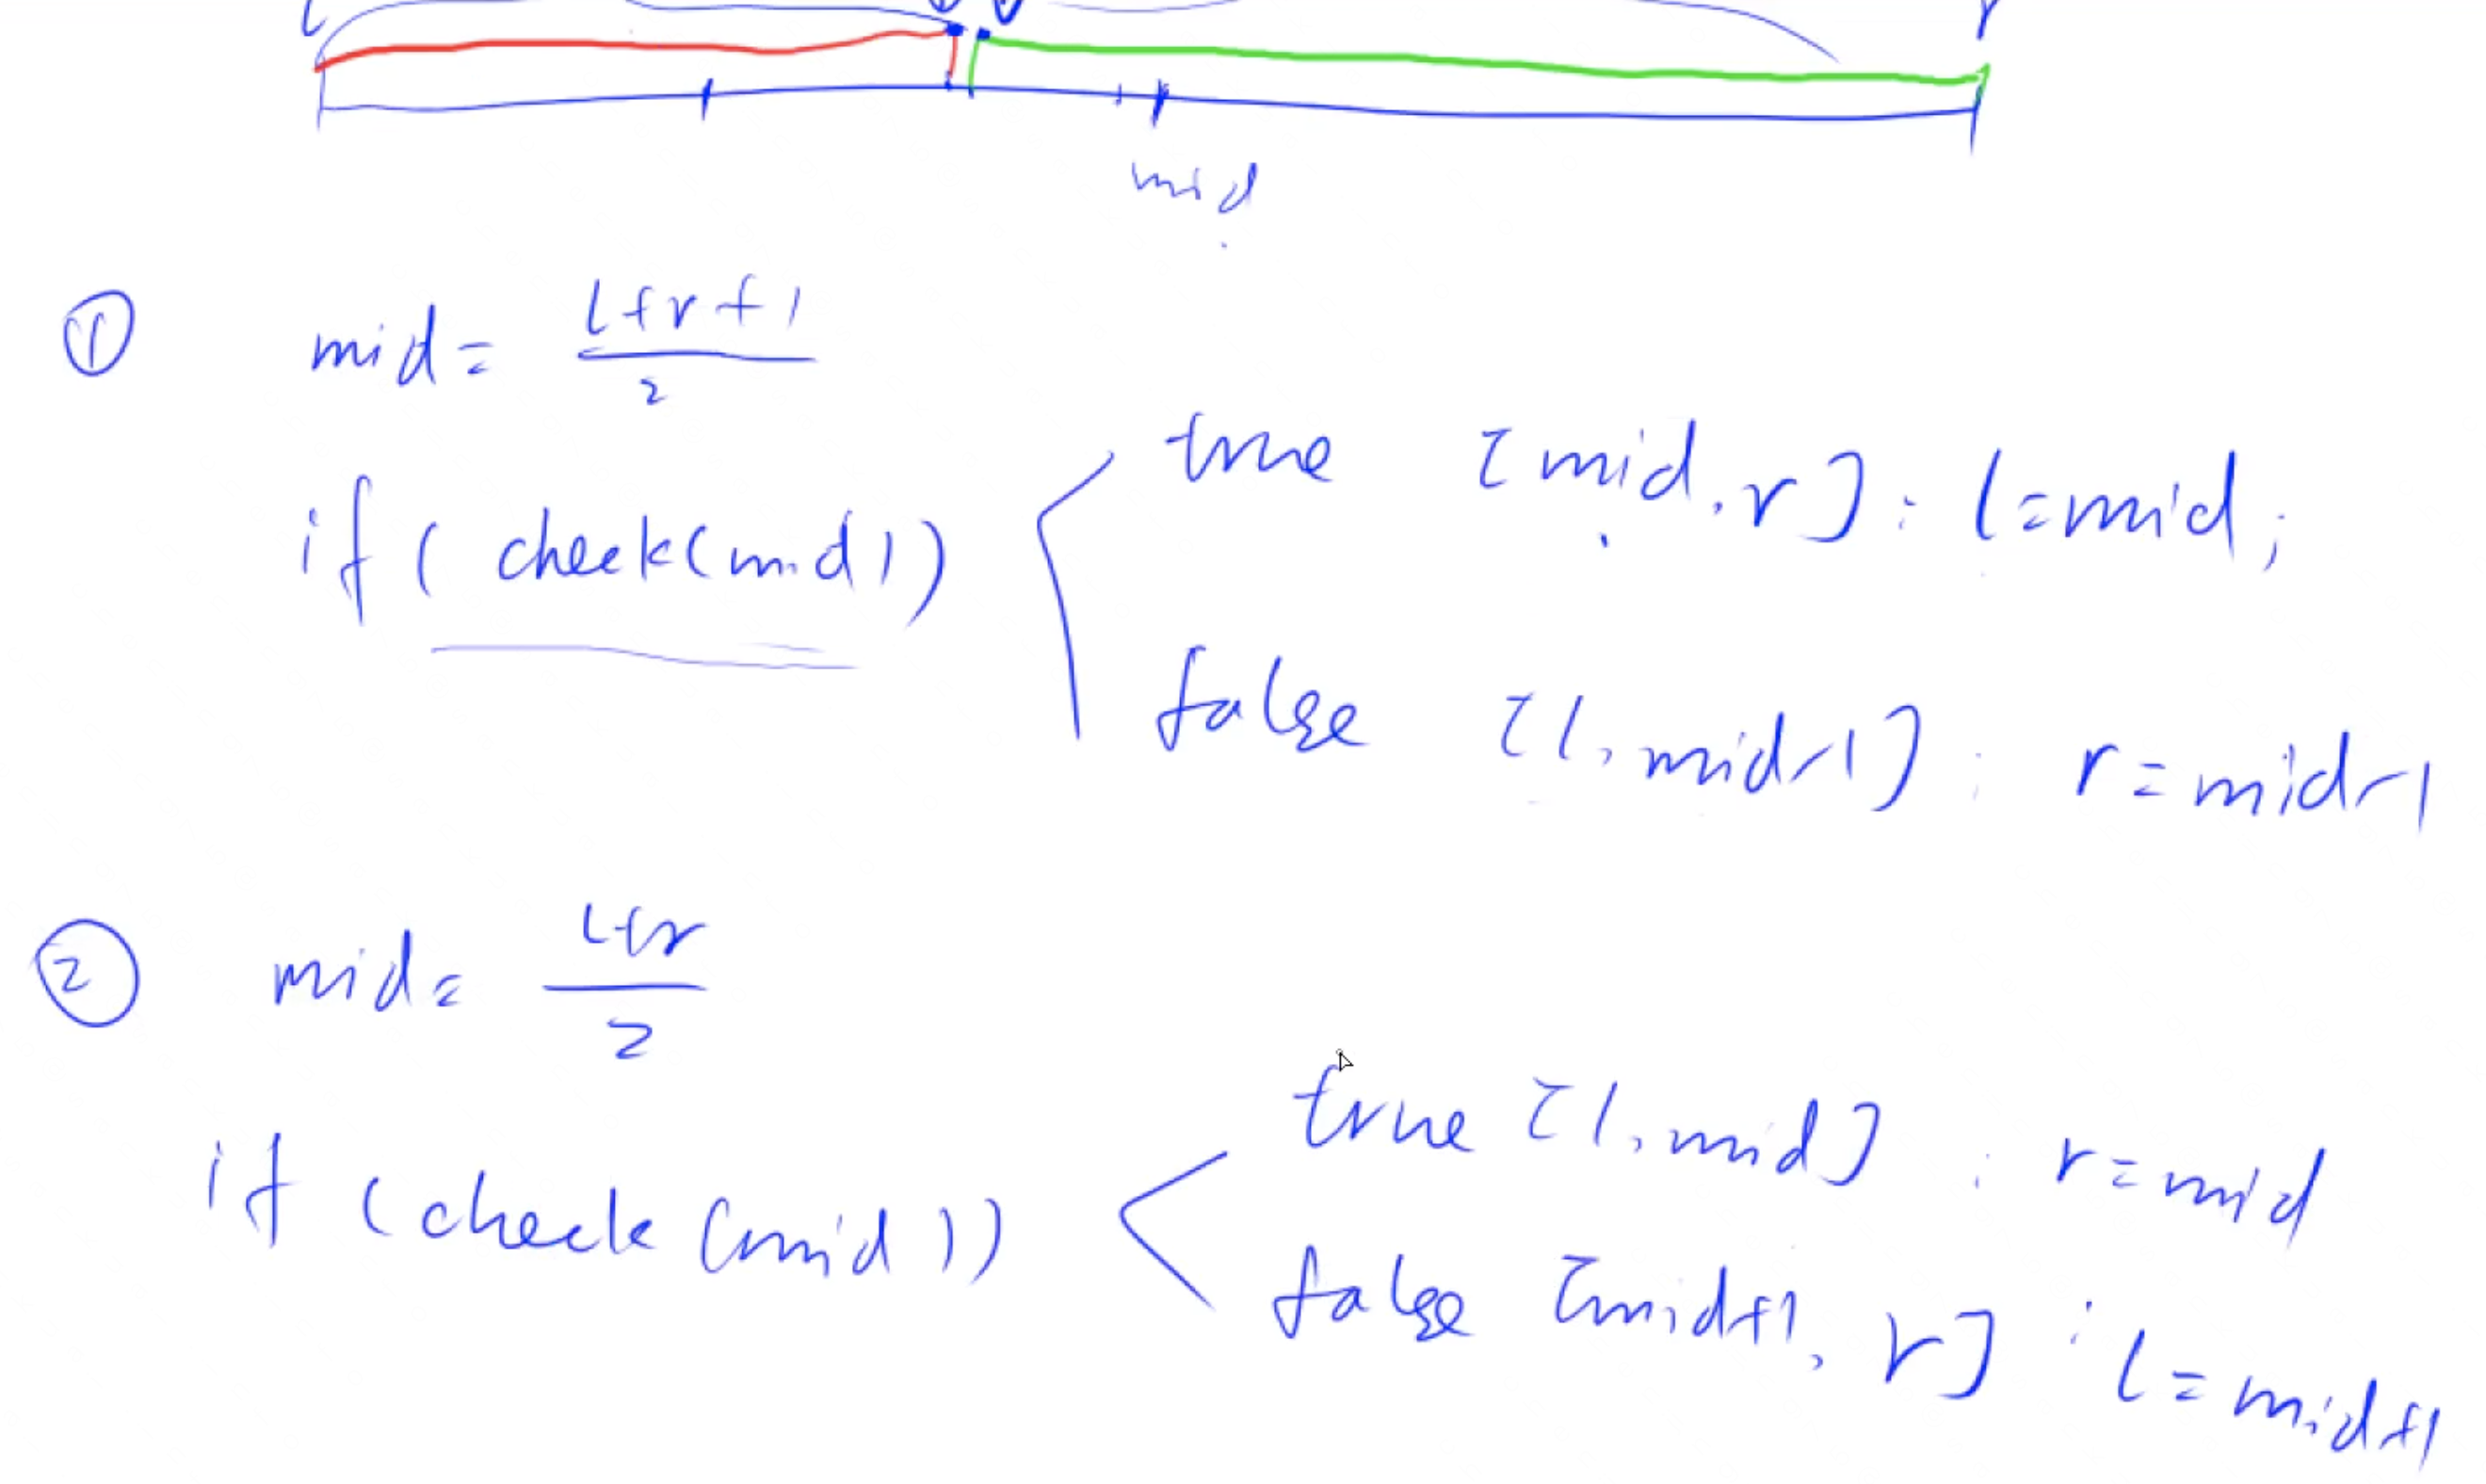 l r
mid
① mid = (l+r+1)/2
if (check(mid)) true [mid, r] : l=mid;
false [l, mid-1] : r=mid-1
② mid = (l+r)/2
if (check(mid)) true [l, mid] : r=mid
false [mid+1, r] : l=mid+1